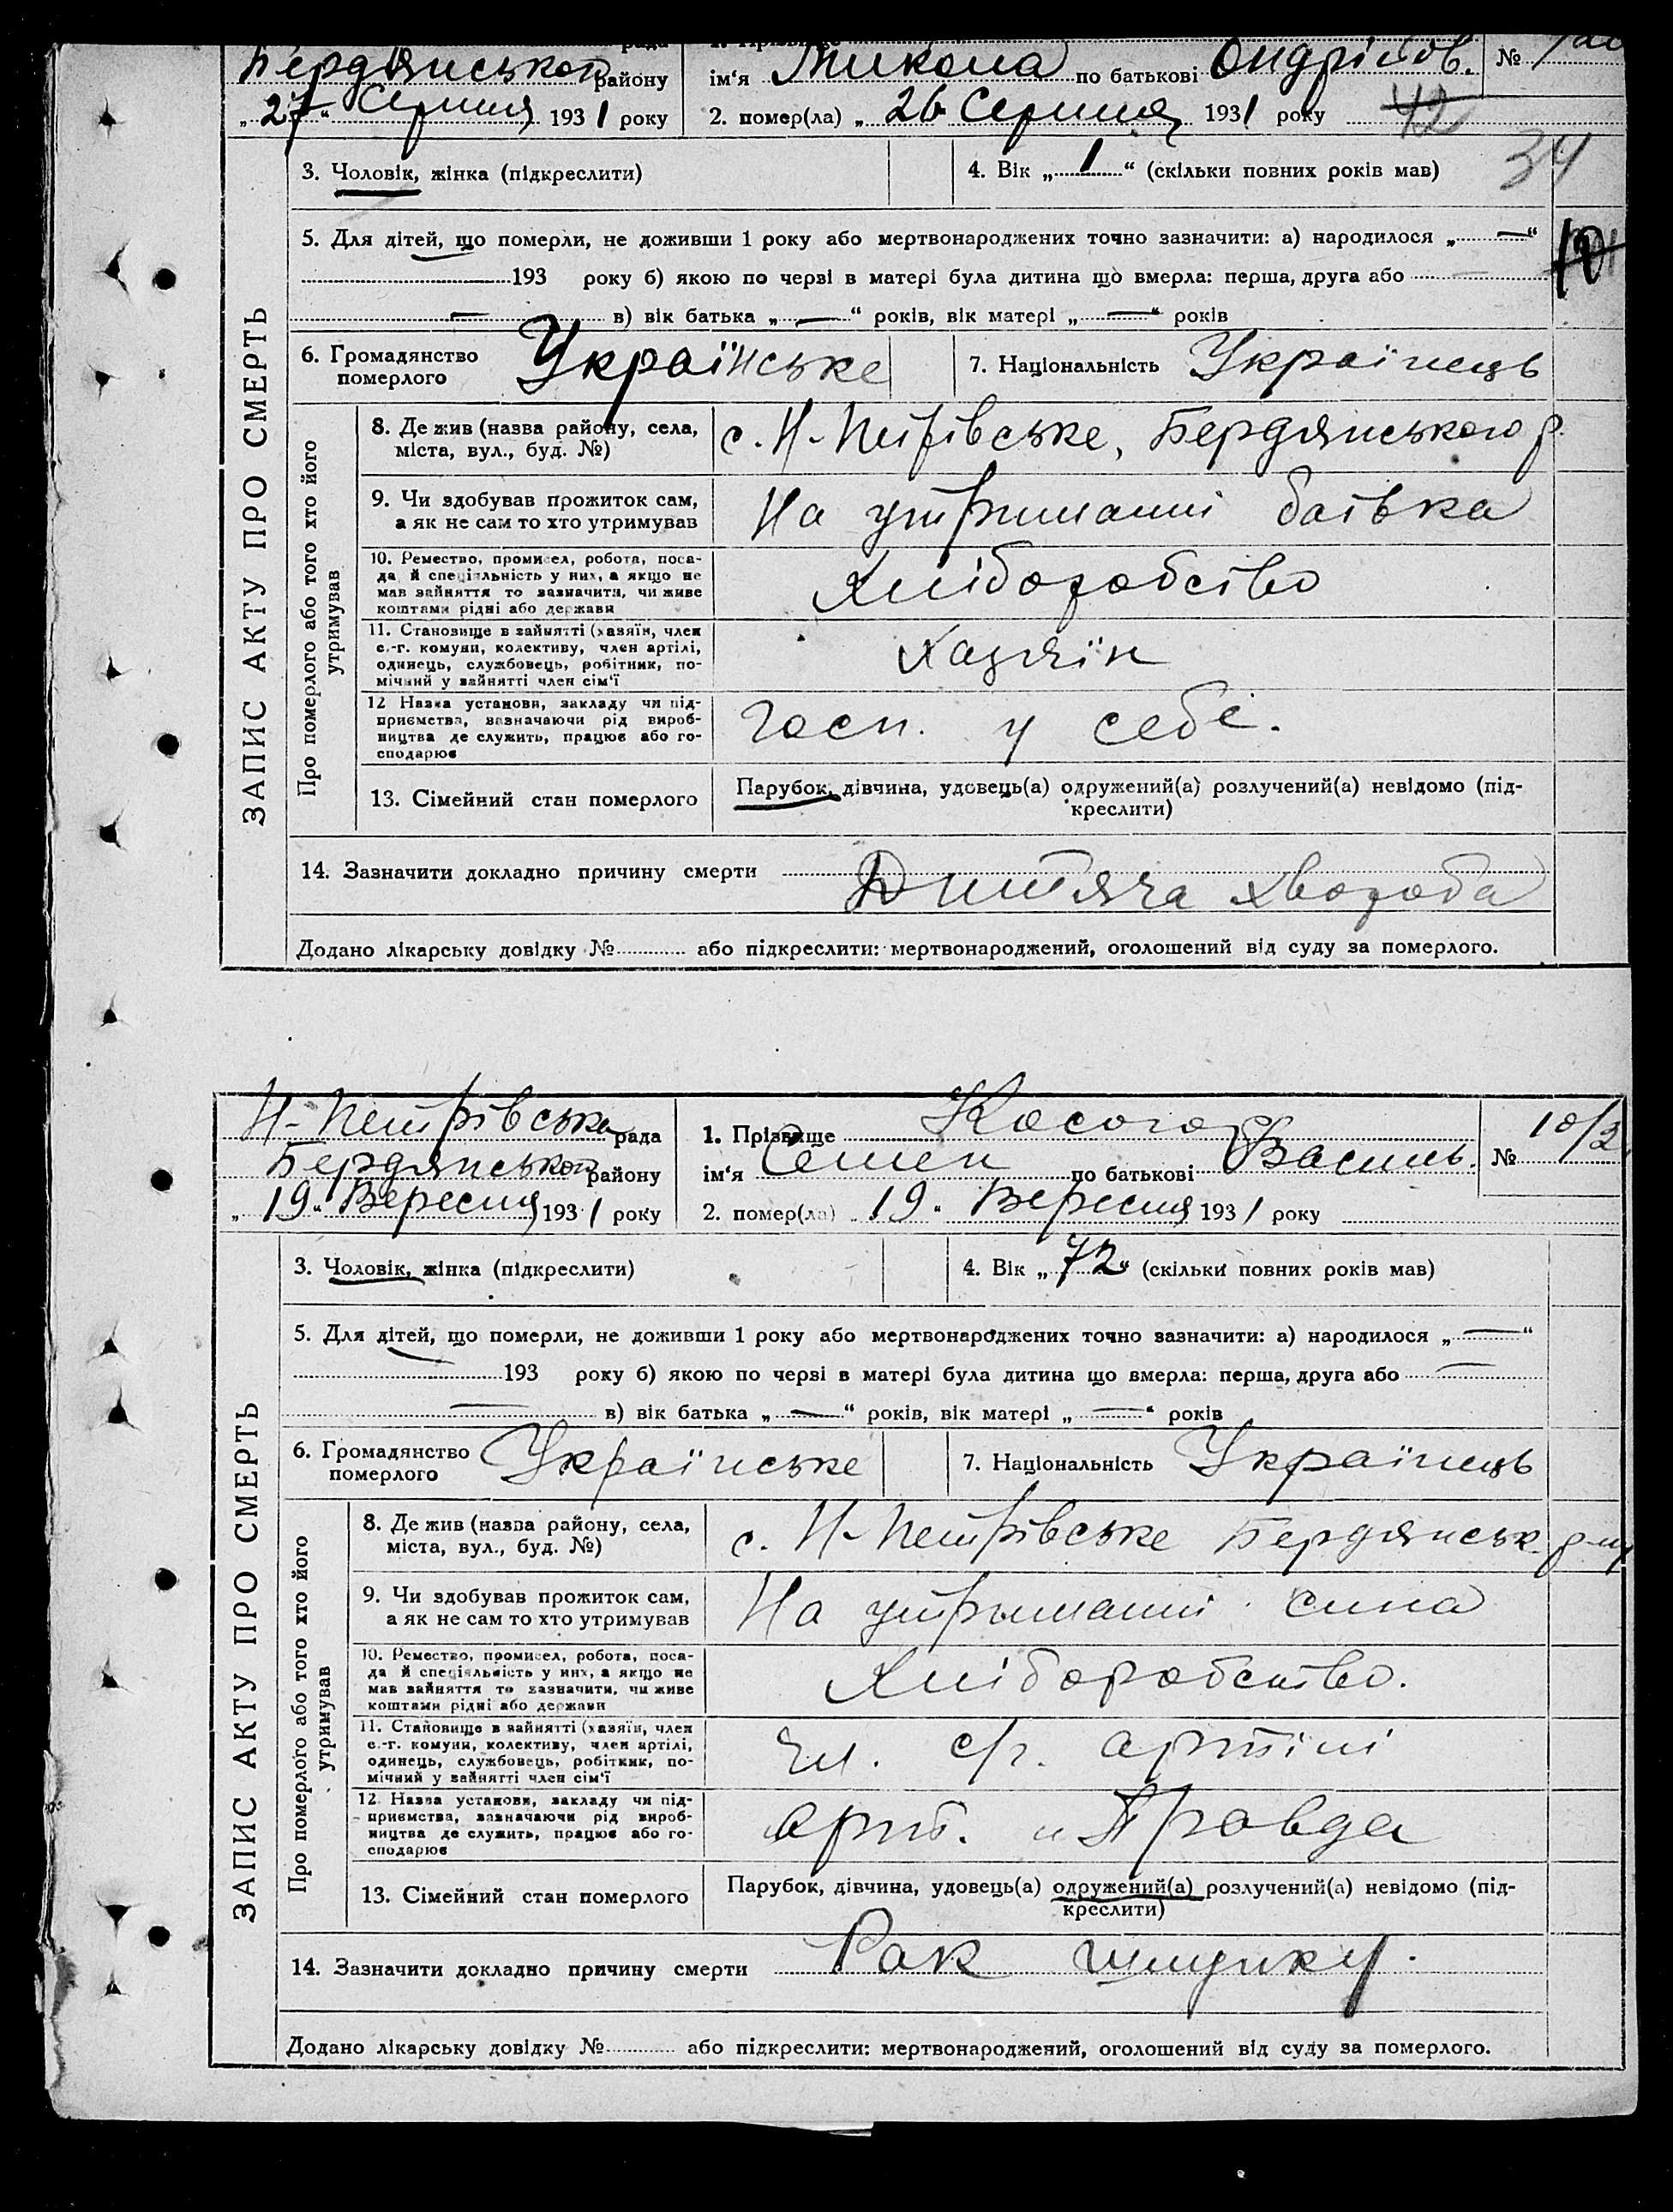 Бердянського району
ім‘я Микола по батькові Ондрійов. №
„27“ Серпня 1931 року
2. помер(ла) „26 Серпня 1931 року 42
34
3. Чоловік, жінка (підкреслити)
4. Вік „1“ (скільки повних років мав)
5. Для дітей, що померли, не доживши 1 року або мертвонароджених точно зазначити: а) народилося „—“
193 року б) якою по черві в матері була дитина що вмерла: перша, друга або —
— в) вік батька „—“ років, вік матері „—“ років
6. Громадянство померлого Українське
7. Національність Українець
ЗАПИС АКТУ ПРО СМЕРТЬ
Про померлого або того хто його утримував
8. Де жив (назва району, села, міста, вул., буд. №)
с. Н-Петрівське, Бердянського р.
9. Чи здобував прожиток сам, а як не сам то хто утримував
На утриманні батька
10. Ремество, промисел, робота, посада й спеціяльність у них, а якщо не мав зайняття то зазначити, чи живе коштами рідні або держави
Хліборобство
11. Становище в зайнятті (хазяїн, член с.-г. комуни, колективу, член артілі, одинець, службовець, робітник, помічний у зайнятті член сім‘ї
Хазяїн
12 Назва установи, закладу чи підприємства, зазначаючи рід виробництва де служить, працює або господарює
Госп. у себе.
13. Сімейний стан померлого
Парубок, дівчина, удовець(а) одружений(а) розлучений(а) невідомо (підкреслити)
14. Зазначити докладно причину смерти Дитяча хвороба
Додано лікарську довідку № або підкреслити: мертвонароджений, оголошений від суду за померлого.
Н-Петрівська рада
1. Прізвище Косогор
№ 10/2
Бердянського району
ім‘я Семен по батькові Василь.
„19“ Вересня 1931 року
2. помер(ла) „19“ Вересня 1931 року
3. Чоловік, жінка (підкреслити)
4. Вік „72“ (скільки повних років мав)
5. Для дітей, що померли, не доживши 1 року або мертвонароджених точно зазначити: а) народилося „—“
193 року б) якою по черві в матері була дитина що вмерла: перша, друга або —
— в) вік батька „—“ років, вік матері „—“ років
6. Громадянство померлого Українське
7. Національність Українець
ЗАПИС АКТУ ПРО СМЕРТЬ
Про померлого або того хто його утримував
8. Де жив (назва району, села, міста, вул., буд. №)
с. Н-Петрівське Бердянськ. р-ну
9. Чи здобував прожиток сам, а як не сам то хто утримував
На утриманні сина
10. Ремество, промисел, робота, посада й спеціяльність у них, а якщо не мав зайняття то зазначити, чи живе коштами рідні або держави
Хліборобство.
11. Становище в зайнятті (хазяїн, член с.-г. комуни, колективу, член артілі, одинець, службовець, робітник, помічний у зайнятті член сім‘ї
Чл. с/г. артілі
12 Назва установи, закладу чи підприємства, зазначаючи рід виробництва де служить, працює або господарює
Арт. „Правда
13. Сімейний стан померлого
Парубок, дівчина, удовець(а) одружений(а) розлучений(а) невідомо (підкреслити)
14. Зазначити докладно причину смерти Рак шлунку.
Додано лікарську довідку № або підкреслити: мертвонароджений, оголошений від суду за померлого.